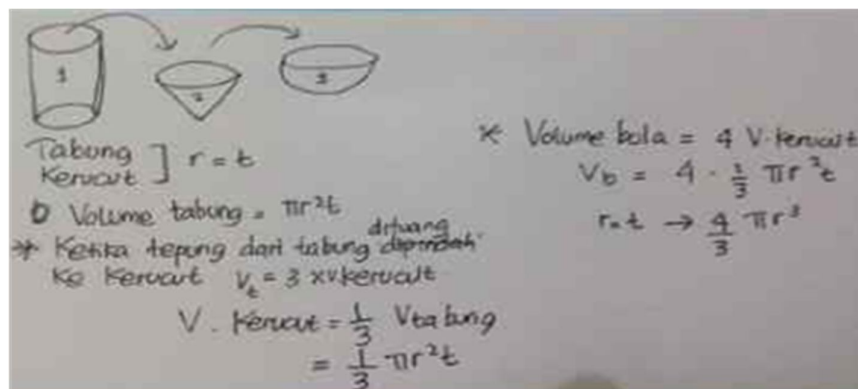 1
2
3
Tabung
Kerucut ] r = t
Volume tabung = πr²t
* Ketika tepung dari tabung dituang dipindah
Ke Kerucut V_t = 3 x v kerucut
V. Kerucut = 1/3 V tabung
= 1/3 πr²t
* Volume bola = 4 V. kerucut
V_b = 4 · 1/3 πr²t
r = t → 4/3 πr³